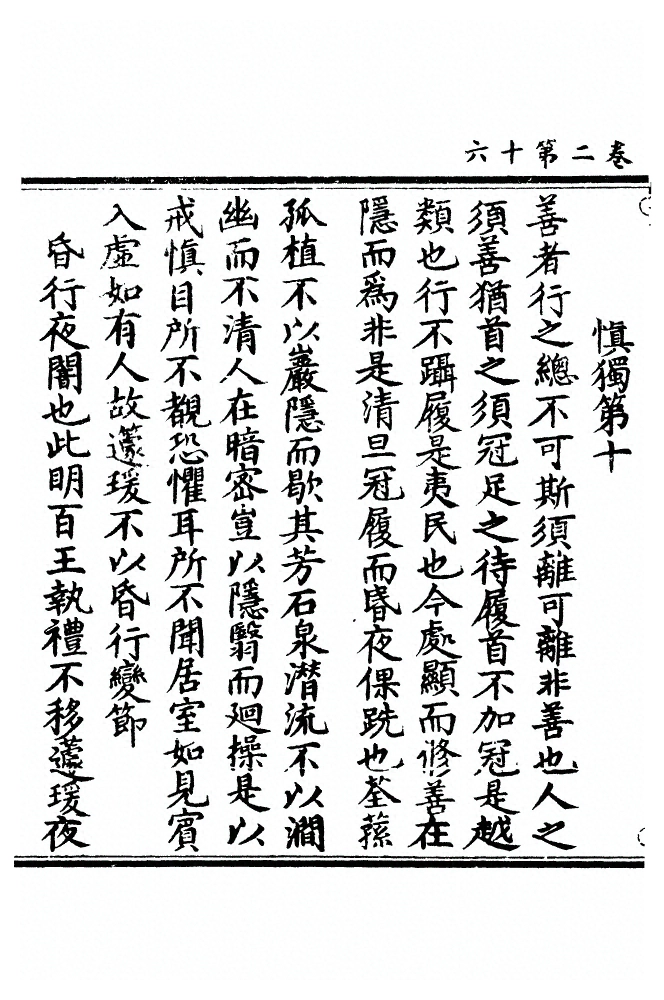 卷二第十六
慎獨第十
善者行之總不可斯須離可離非善也人之
須善猶首之須冠足之待履首不加冠是越
類也行不躡履是夷民也今處顯而修善在
隱而為非是清旦冠履而昬夜倮跣也荃蓀
孤植不以巖隱而歇其芳石泉潛流不以澗
幽而不清人在暗密豈以隱翳而迴操是以
戒慎目所不覩恐懼耳所不聞居室如見賓
入虛如有人故蘧瑗不以昏行變節
昏行夜闇也此明百王執禮不移蘧瑗夜